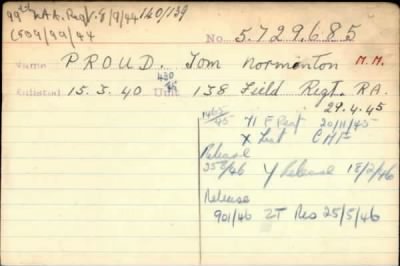 99th L.A.A. Regt. 8/9/44 140/139
C509/99/44
No. 5.729.685
Name PROUD. Tom Normenton M.M.
430
Enlisted 15.3.40 Unit 138 Field Regt. RA.
29.4.45
1465/45 Y1 F Regt 20/11/45
X List C M F
Release
358/46 Y Release 18/2/46
Release
901/46 ZT Res 25/5/46